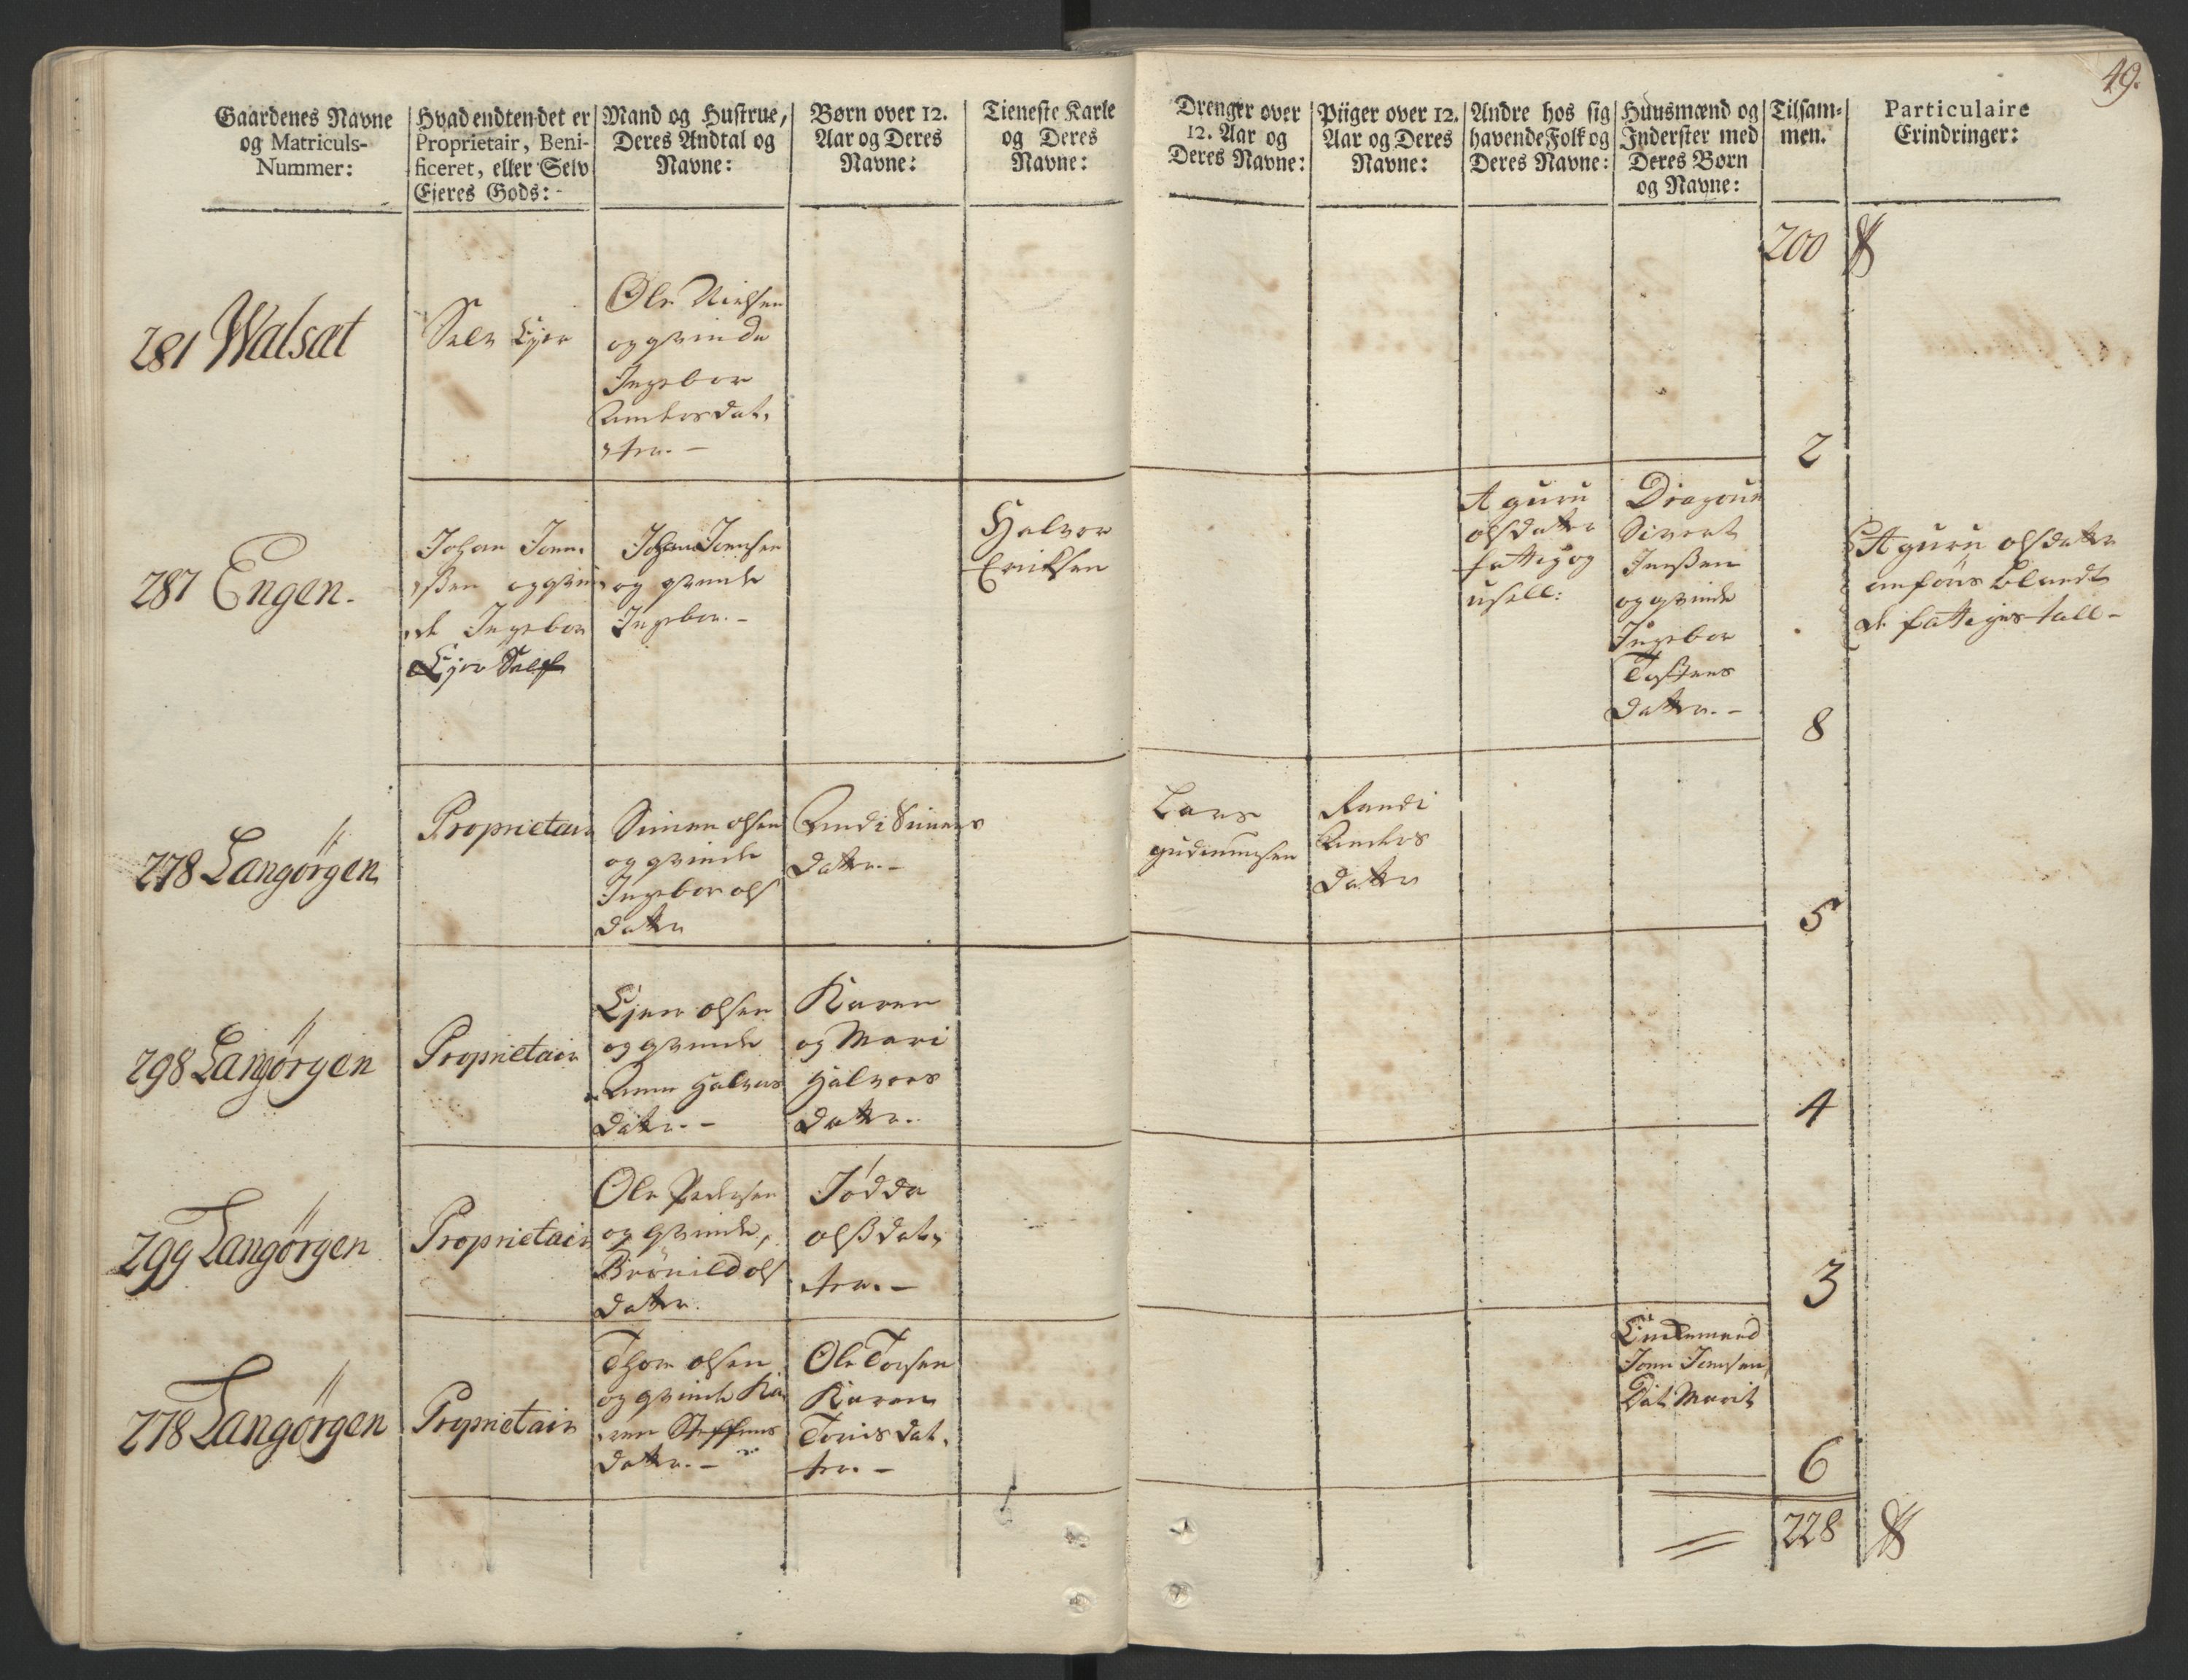 49.
Gaardenes Navne
og Matriculs-
Nummer:
Hvad endten det er
Proprietair, Beni-
ficeret, eller Selv
Ejeres Gods:
Mand og Hustrue,
Deres Andtal og
Navne:
Børn over 12.
Aar og Deres
Navne:
Tieneste Karle
og Deres
Navne:
Drenger over
12. Aar og
Deres Navne:
Piiger over 12.
Aar og Deres
Navne:
Andre hos sig
havende Folk og
Deres Navne:
Huusmænd og
Inderster med
Deres Børn
og Navne:
Tilsam-
men.
Particulaire
Erindringer:
200
281 Walsæt
Selv Ejer
Ole Nielsen
og qvinde
Ingebor
Andersdat,
,ter. -
2
287 Engen.
Johan Jonn-
,ßen og qvin,
,de Ingebor
Ejer Self
Johan Jonnsen
og qvinde
Ingebor. -
Halvor
Eriksen
Aguru
olsdatter
fattig og
usell:
Dragoun
Sivert
Jenßen
og qvinde
Ingebor
Tostens
datter. -
8
Aguru olsdatter
anføris blandt
de fattiges tall -
278 Langørgen
Proprietair
Simen olsen
og qvinde
Ingebor ols
datter
Andi Simens
datter. -
Lars
gudmunsen
Randi
Anders
datter
5
298 Langørgen
Proprietair
Ejer olsen
og qvinde
Anne Halvors
datter. -
Karen
og Mari
Halvors
datter.
4
299 Langørgen
Proprietair
Ole Pedersen
og qvinde,
Brønild ols
datter.
Jødda
olßdat,
ter. -
3
278 Langørgen
Proprietair
Thore olsen
og qvinde Ka,
,ren Steffens
datter. -
Ole Torsen
Karen
Toris dat,
ter. -
Jonn Jonsen,
Dat Marit
6
228